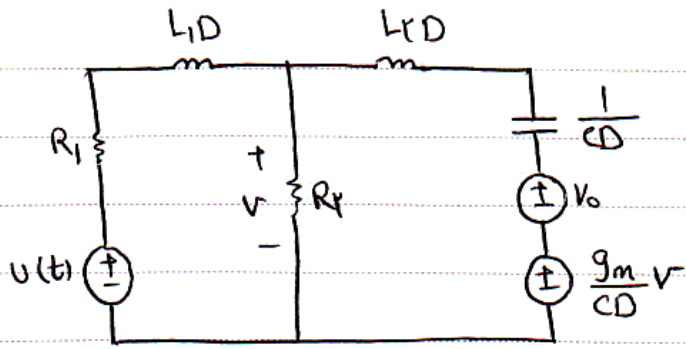 L₁D L۲D
R₁ + V - R۲ 1/CD
+ - V₀
U(t) + - + - gm/CD V